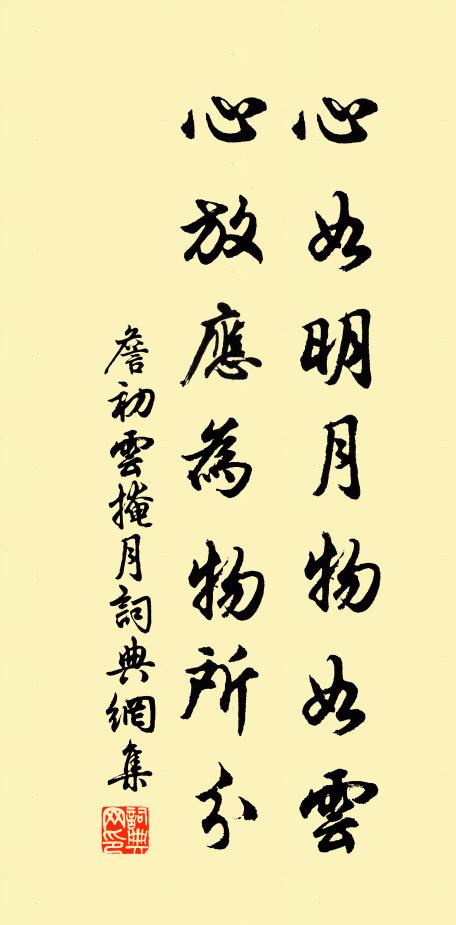 心如明月物如雲
心放應為物所分
詹初雲掩月詞典網集
詞典网印